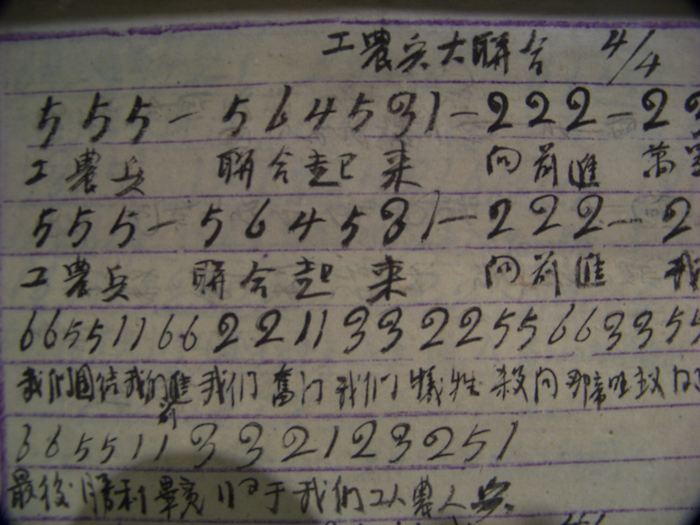 工農兵大聯合 4/4
5 5 5 — 5 6 4 5 3 1 — 2 2 2 — 2 2
工農兵 聯合起来 向前進 萬
5 5 5 — 5 6 4 5 3 1 — 2 2 2 — 2
工農兵 聯合起来 向前進 我
6 6 5 5 1 1 6 6 2 2 1 1 3 3 2 2 5 5 6 6 3 3 5 5
我们團结我们前進我们奮鬥我们犧牲殺向那帝
3 6 5 5 1 1 3 3 2 1 2 3 2 5 1
最後勝利畢竟归于我们工人農人兵